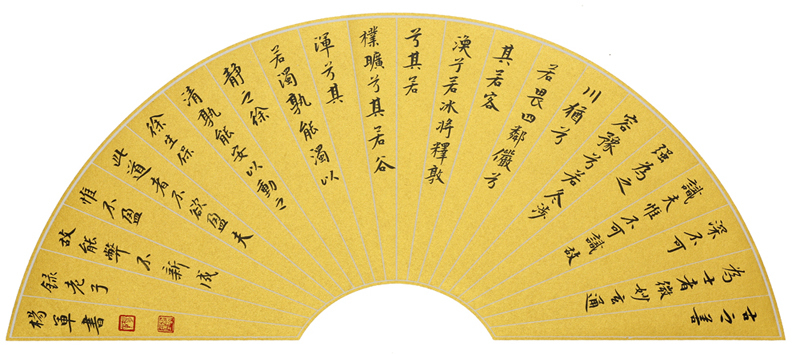 古之善
為士者微妙玄通
深不可
識夫惟不可識故
强為之
容豫兮若冬涉
川猶兮
若畏四鄰儼兮
其若容
渙兮若冰將釋敦
兮其若
樸曠兮其若谷
渾兮其
若濁孰能濁以
靜之徐
清孰能安以動之
徐生保
此道者不欲盈夫
惟不盈
故能弊不新成
録老子
楊軍書